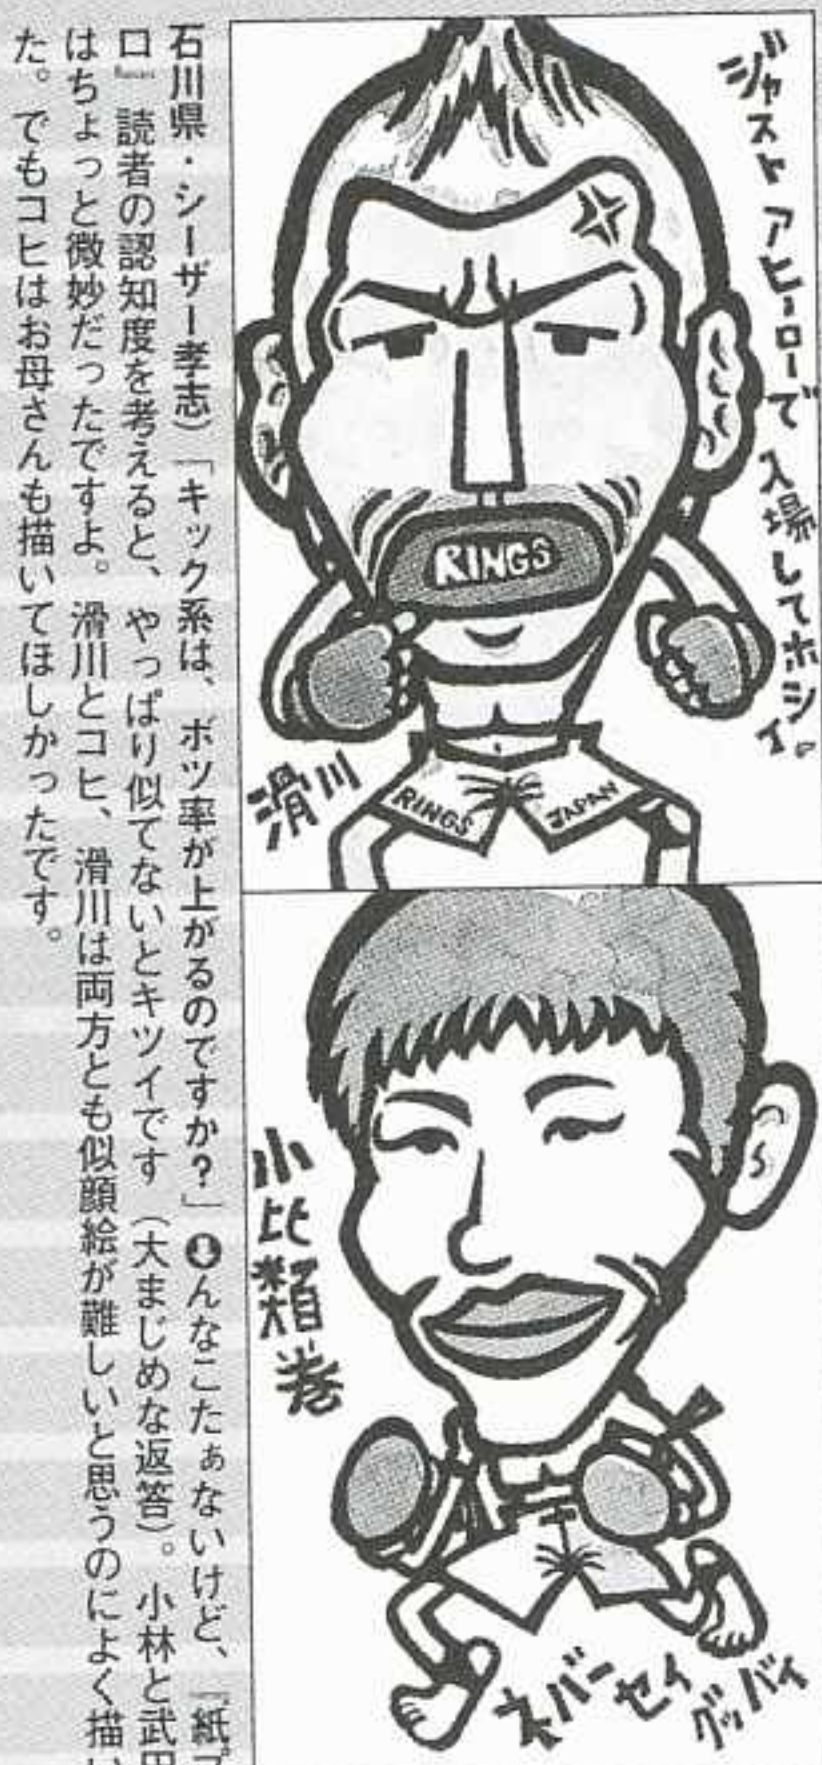 ジャスト アヒーローで 入場してホシイ。
RINGS
滑川
RINGS
JAPAN
小比類巻
ネバー セイ グッバイ
石川県・シーザー孝志)「キック系は、ボツ率が上がるのですか?」んなこたぁないけど、『紙プ
ロ』読者の認知度を考えると、やっぱり似てないとキツイです(大まじめな返答)。小林と武田
はちょっと微妙だったですよ。滑川とコヒ、滑川は両方とも似顔絵が難しいと思うのによく描い
た。でもコヒはお母さんも描いてほしかったです。